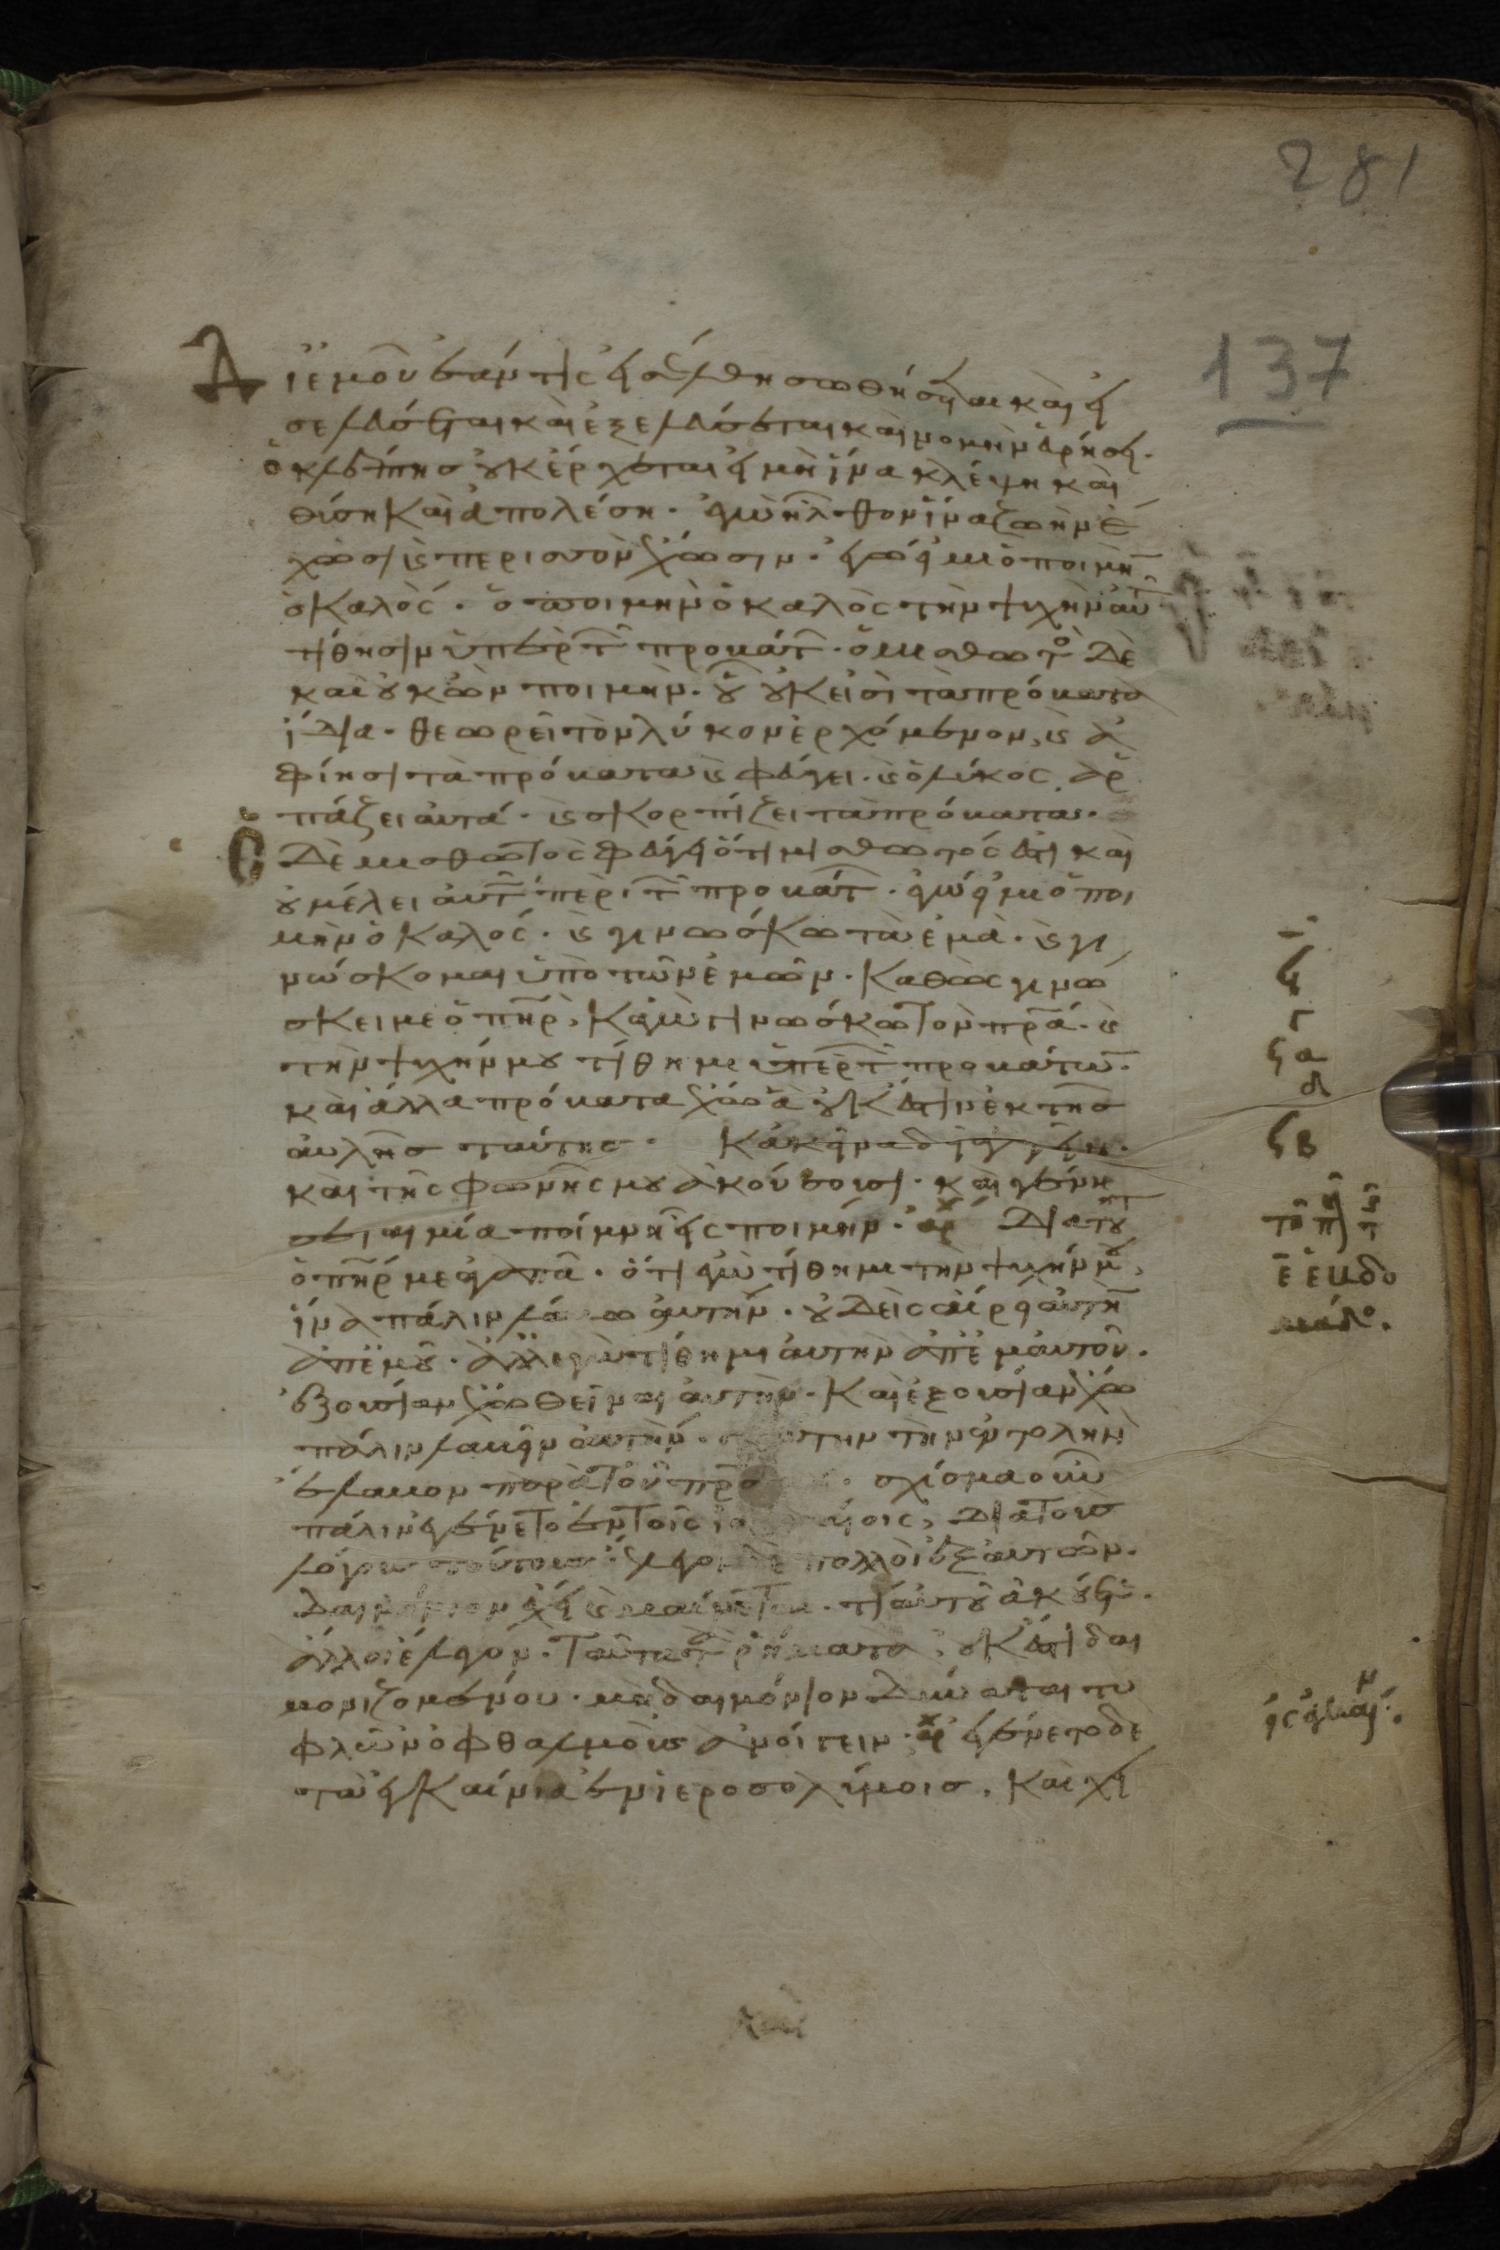 281
137
Δι ἐμοῦ ἐάν τις εἰσέλθη σωθήσεται καὶ εἰ
σελεύσεται καὶ ἐξελεύσεται καὶ νομὴν εὑρήσει.
ὁ κλέπτης οὐκ ἔρχεται εἰ μὴ ἵνα κλέψη καὶ
θύση καὶ ἀπολέση. ἐγὼ ἦλθον ἵνα ζωὴν ἔ
χωσι κ περισσὸν ἔχωσιν. ἐγώ εἰμι ὁ ποιμὴν
ὁ καλός. ὁ ποιμὴν ὁ καλὸς τὴν ψυχὴν αὐτ
τίθησιν ὑπὲρ τ προβάτ. ὁ μισθωτὸ δὲ
καὶ οὐκ ὢν ποιμήν. οὗ οὐκ εἰσὶ τὰ πρόβατα
ἴδια. θεωρεῖ τὸν λύκον ἐρχόμενον, κ ἀ
φίησι τὰ πρόβατα κ φεύγει. κ ὁ λύκος ἁρ
πάζει αὐτά. κ σκορπίζει τὰ πρόβατα.
Ὁ δὲ μισθωτὸς φεύγει ὅτι μισθωτός ἐστι καὶ
οὐ μέλει αὐτ περὶ τ προβάτ. ἐγώ εἰμι ὁ ποι
μὴν ὁ καλός. κ γινώσκω τὰ ἐμὰ. κ γι
νώσκομαι ὑπὸ τῶν ἐμῶν. καθὼς γινώ
σκει με ὁ πηρ, κἀγὼ γινώσκω τὸν πρα. κ
τὴν ψυχήν μου τίθημι ὑπὲρ τ προβάτων.
καὶ ἄλλα πρόβατα ἔχω ἃ οὐκ ἔστιν ἐκ τῆς
αὐλῆς ταύτης. κἀκεῖνα δεῖ με ἀγαγεῖν.
καὶ τῆς φωνῆς μου ἀκούσουσι. καὶ γενή
σεται μία ποίμνη εἷς ποιμήν. αρ Διὰ τοῦτ
ὁ πηρ με ἀγαπᾶ. ὅτι ἐγὼ τίθημι τὴν ψυχήν μου,
ἵνα πάλιν λάβω αὐτήν. οὐδεὶς αἴρει αὐτὴν
ἀπ ἐμοῦ. ἀλλ ἐγὼ τίθημι αὐτὴν ἀπ ἐμαυτοῦ.
ἐξουσίαν ἔχω θεῖναι αὐτὴν. καὶ ἐξουσίαν ἔχω
πάλιν λαβεῖν αὐτήν. ταύτην τὴν ἐντολὴν
ἔλαβον παρὰ τοῦ πρς σχίσμα οὖν
πάλιν ἐγένετο ἐν τοῖς ἰουδαίοις, διὰ τοὺς
λόγους τούτους. ἔλεγον δὲ πολλοὶ ἐξ αὐτῶν.
δαιμόνιον ἔχει κ μαίνεται. τί αὐτοῦ ἀκούετε.
ἄλλοι ἔλεγον. ταῦτα τ ῥήματα, οὐκ ἔστι δαι
μονιζομένου. μὴ δαιμόνιον δύναται τυ
φλῶν ὀφθαλμοὺς ἀνοίγειν. αρ ἐγένετο δὲ
τὰ ἐγκαίνια ἐν ἱεροσολύμοις. καὶ χει